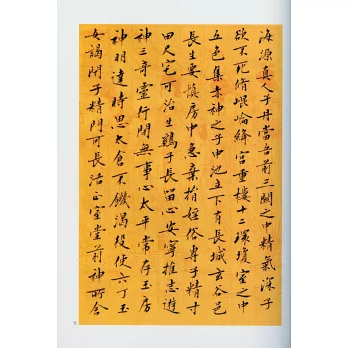 海源真人子丹當吾前三關之中精氣深子
欲不死脩崐崘絳宮重樓十二環瓊室之中
五色集赤神之子中池立下有長城玄谷邑
長生要慎房中急棄捐婬俗專子精寸
田尺宅可治生雞子長留心安寧推志遊
神三奇靈行閒無事心太平常存玉房
神明達時思太倉不饑渴役使六丁玉
女謁閉子精門可長活正室堂前神所舍